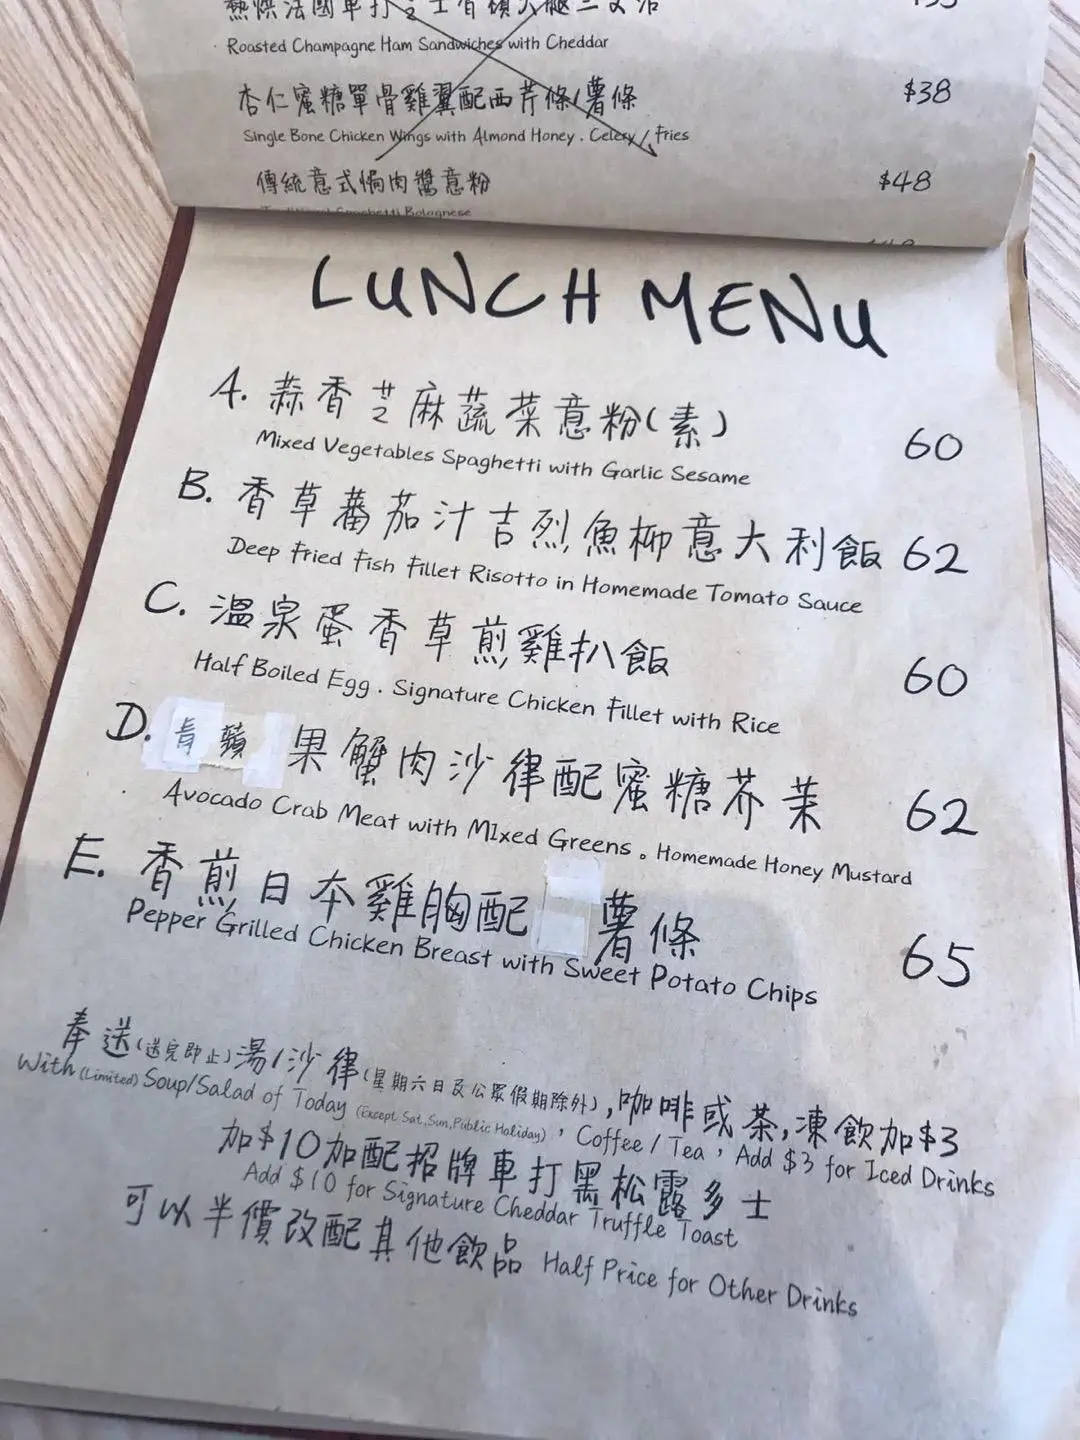 Roasted Champagne Ham Sandwiches with Cheddar
杏仁蜜糖單骨雞翼配西芹條/薯條 $38
Single Bone Chicken Wings with Almond Honey . Celery / Fries
傳統意式焗肉醬意粉 $48
LUNCH MENU
A. 蒜香芝麻蔬菜意粉(素) 60
Mixed Vegetables Spaghetti with Garlic Sesame
B. 香草蕃茄汁吉烈魚柳意大利飯 62
Deep Fried Fish Fillet Risotto in Homemade Tomato Sauce
C. 溫泉蛋香草煎雞扒飯 60
Half Boiled Egg . Signature Chicken Fillet with Rice
D. 青蘋果蟹肉沙律配蜜糖芥茉 62
Avocado Crab Meat with MIxed Greens 。 Homemade Honey Mustard
E. 香煎日本雞胸配 薯條 65
Pepper Grilled Chicken Breast with Sweet Potato Chips
奉送(送完即止)湯/沙律(星期六日及公眾假期除外),咖啡或茶,凍飲加$3
With (Limited) Soup/Salad of Today (Except Sat,Sun,Public Holiday) , Coffee / Tea , Add $3 for Iced Drinks
加$10加配招牌車打黑松露多士
Add $10 for Signature Cheddar Truffle Toast
可以半價改配其他飲品 Half Price for Other Drinks